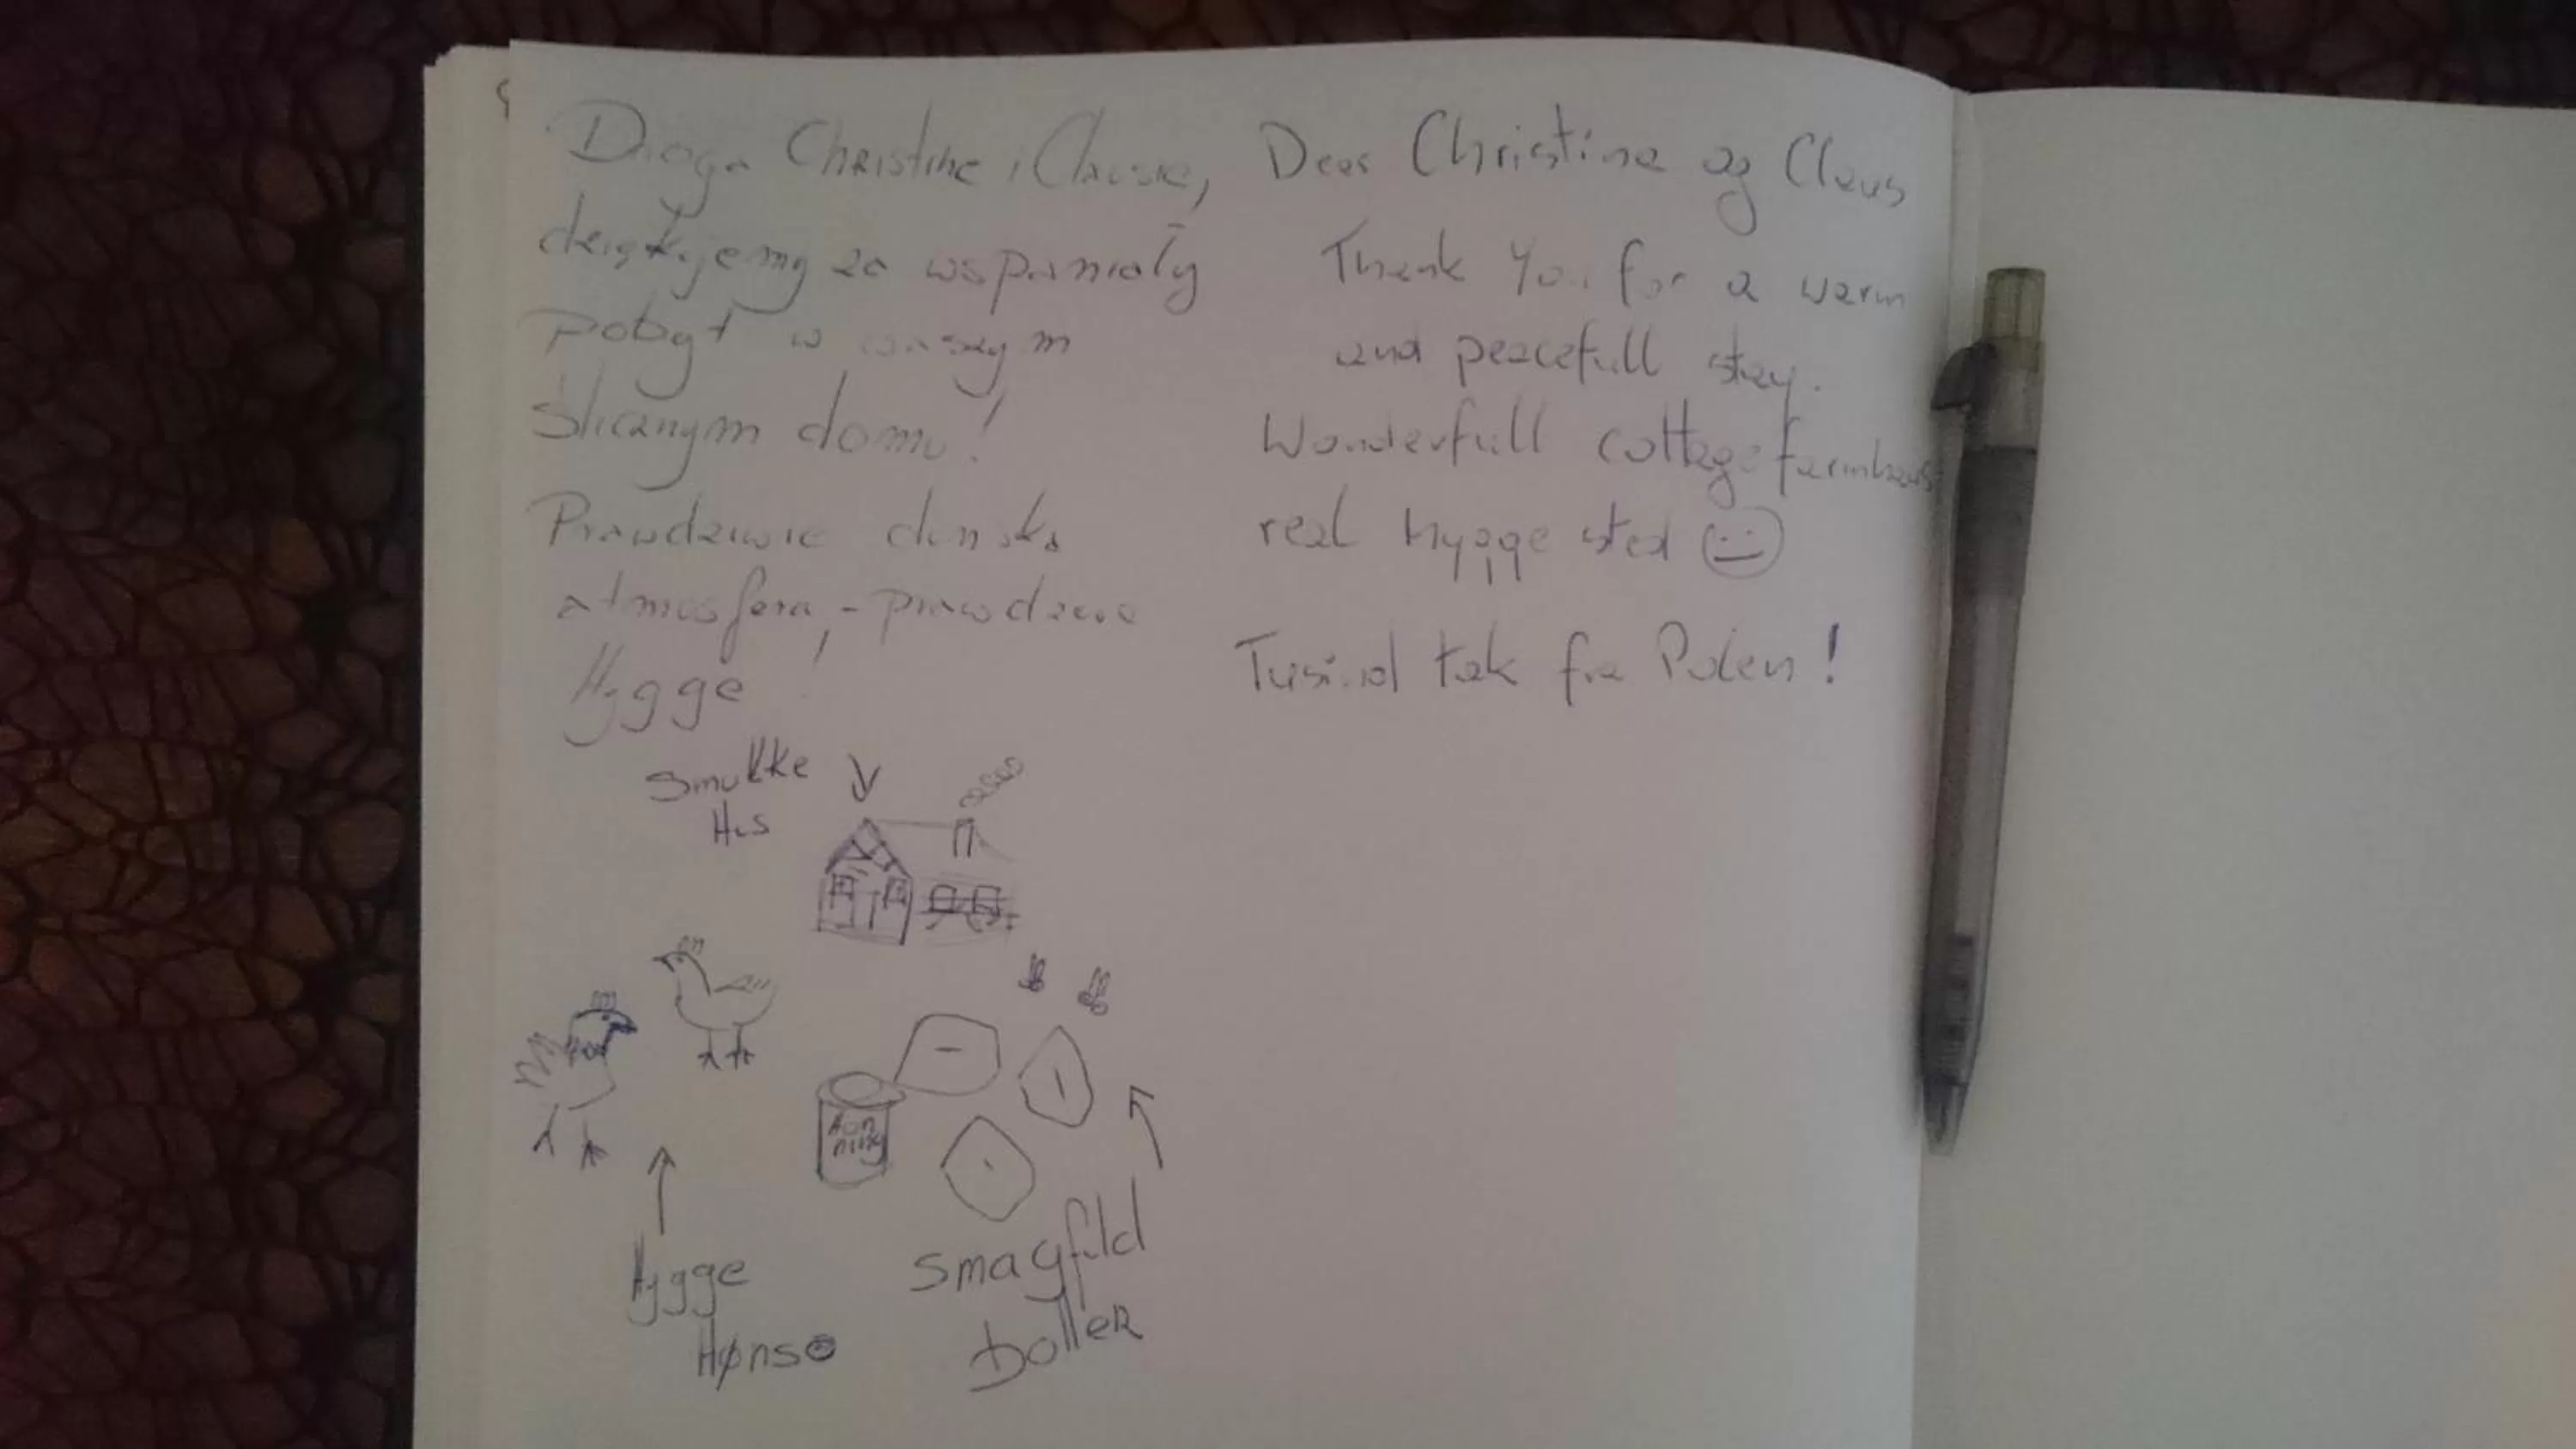 Droga Christine i Clausie,
dziękujemy za wspaniały
pobyt w waszym
ślicznym domu!
Prawdziwie duńska
atmosfera, - prawdziwe
Hygge!
Dear Christina og Claus
Thank You for a warm
and peacefull stay.
Wonderfull cottage farmhouse
real hygge sted
Tusind tak fra Polen!
Smukke
Hus
Hon
ning
Hygge
Høns
smagfuld
boller